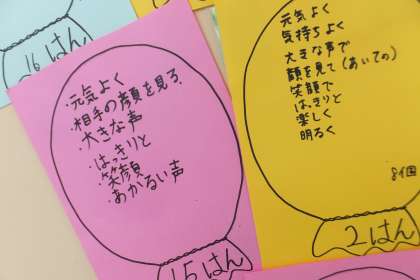 16はん
・元気よく
・相手の顔を見る。
・大きな声
・はっきりと
・笑顔
・あかるい声
15はん
元気よく
気持ちよく
大きな声で
顔を見て(あいての)
笑顔で
はっきりと
楽しく
明るく
8個
2はん